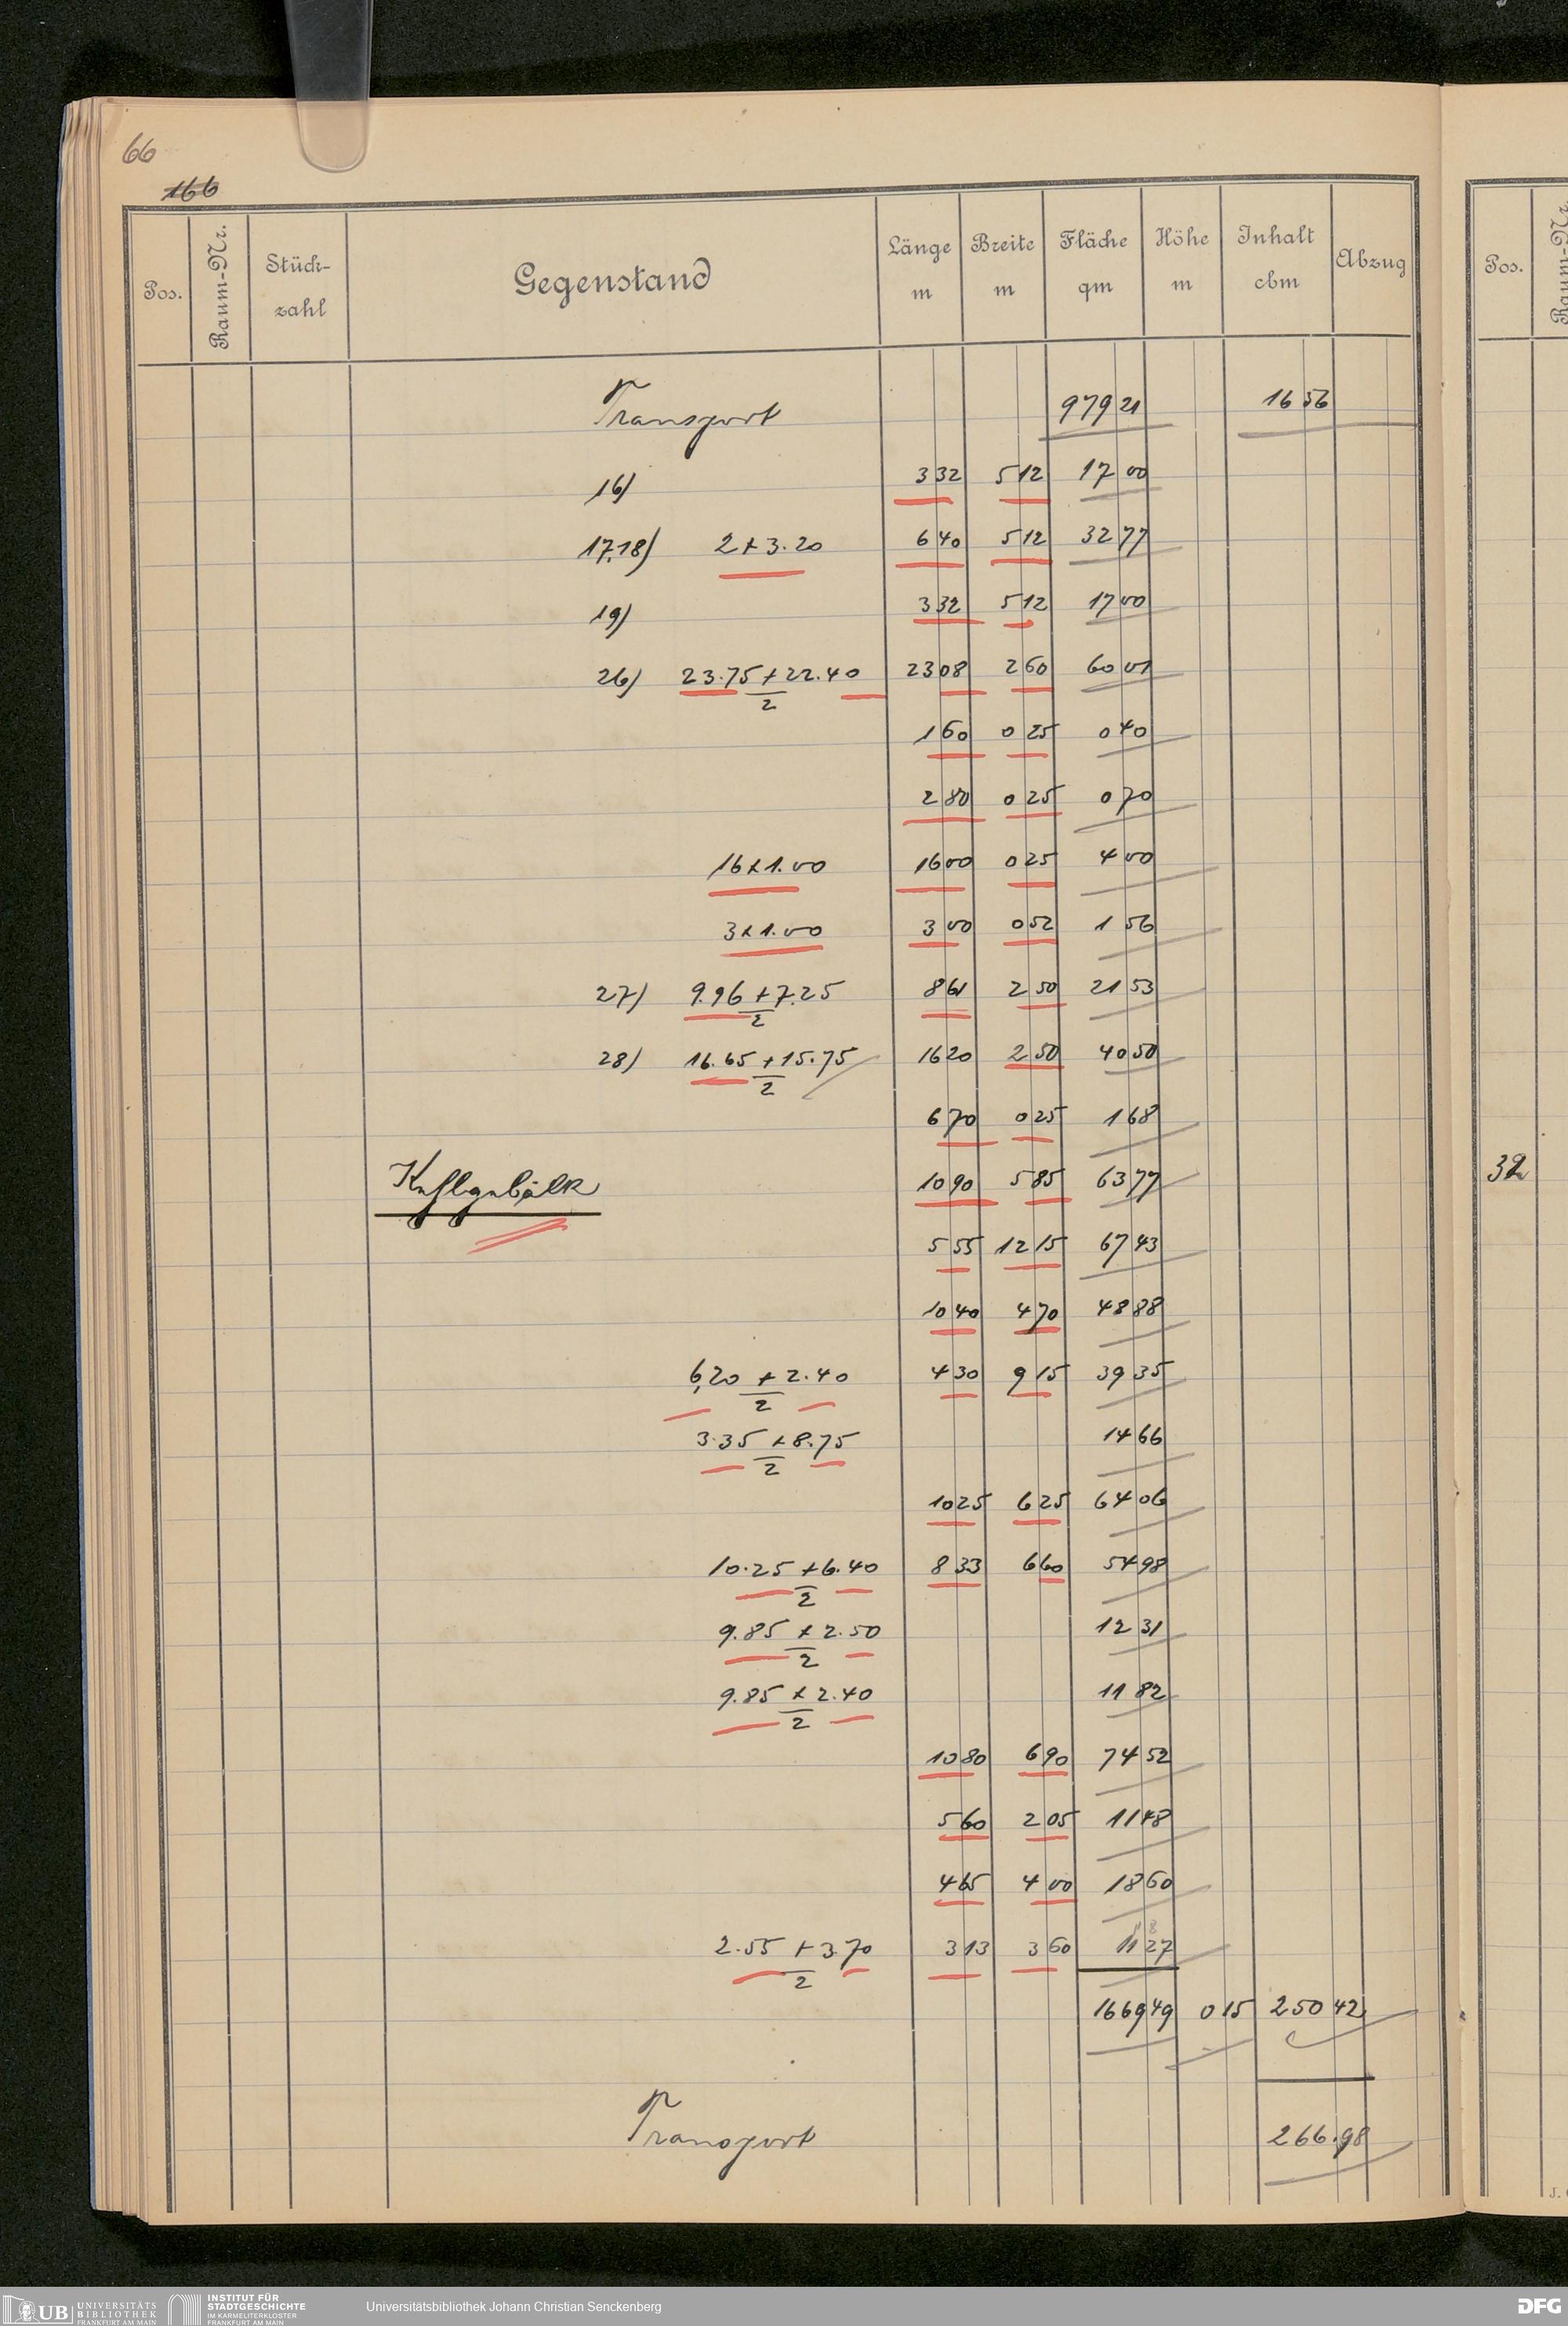 66
166
Pos. Raum-Nr. Stück-zahl Gegenstand Länge m Breite m Fläche qm Höhe m Inhalt cbm Abzug
Pos. Raum-Nr.
Transport 979 21 16 56
16) 3 32 5 12 17 00
17,18) 2 x 3.20 6 40 5 12 32 77
19) 3 32 5 12 17 00
26) 23.75 + 22.40 / 2 23 08 2 60 60 01
1 60 0 25 0 40
2 80 0 25 0 70
16 x 1.00 16 00 0 25 4 00
3 x 1.00 3 00 0 52 1 56
27) 9.96 + 7.25 / 2 8 61 2 50 21 53
28) 16.65 + 15.75 / 2 16 20 2 50 40 50
6 70 0 25 1 68
Kehlgebälk 10 90 5 85 63 77
32
5 55 12 15 67 43
10 40 4 70 48 88
6,20 + 2.40 / 2 4 30 9 15 39 35
3.35 x 8.75 / 2 14 66
10 25 6 25 64 06
10.25 + 6.40 / 2 8 33 6 60 54 98
9.85 x 2.50 / 2 12 31
9.85 x 2.40 / 2 11 82
10 80 6 90 74 52
5 60 2 05 11 48
4 65 4 00 18 60
2.55 + 3.70 / 2 3 13 3 60 11 27
1669 49 0 15 250 42
Transport 266.98
UB UNIVERSITÄTS BIBLIOTHEK FRANKFURT AM MAIN
INSTITUT FÜR STADTGESCHICHTE IM KARMELITERKLOSTER FRANKFURT AM MAIN
Universitätsbibliothek Johann Christian Senckenberg
DFG